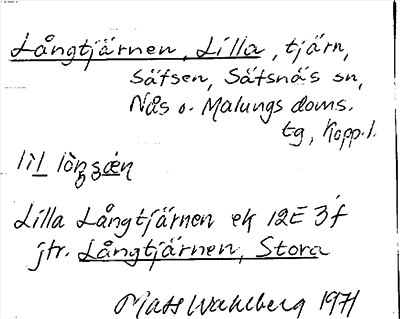 Långtjärnen, Lilla, tjärn,
Säfsen, Säfsnäs sn,
Nås o. Malungs doms.
tg, Kopp. l.
lil
Lilla Långtjärnen ek 12E 3f
jfr. Långtjärnen, Stora
Mats Wahlberg 1971